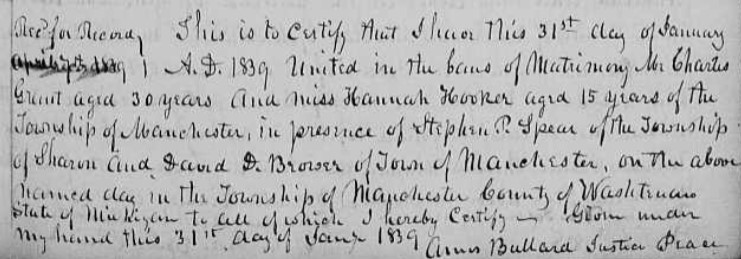 Rec'd for Record, This is to Certify that I have this 31st day of January
April 9th 1839 } A.D. 1839 United in the bans of Matrimony Mr Charles
Grant aged 30 years and miss Hannah Hooker aged 15 years of the
Township of Manchester, in presence of Stephen P. Spear of the Township
of Sharon and David D. Brower of Town of Manchester, on the above
named day in the Township of Manchester County of Washtenaw
State of Michigan to all of which I hereby Certify — Given under
my hand this 31st day of Jany 1839 Amos Bullard Justice Peace